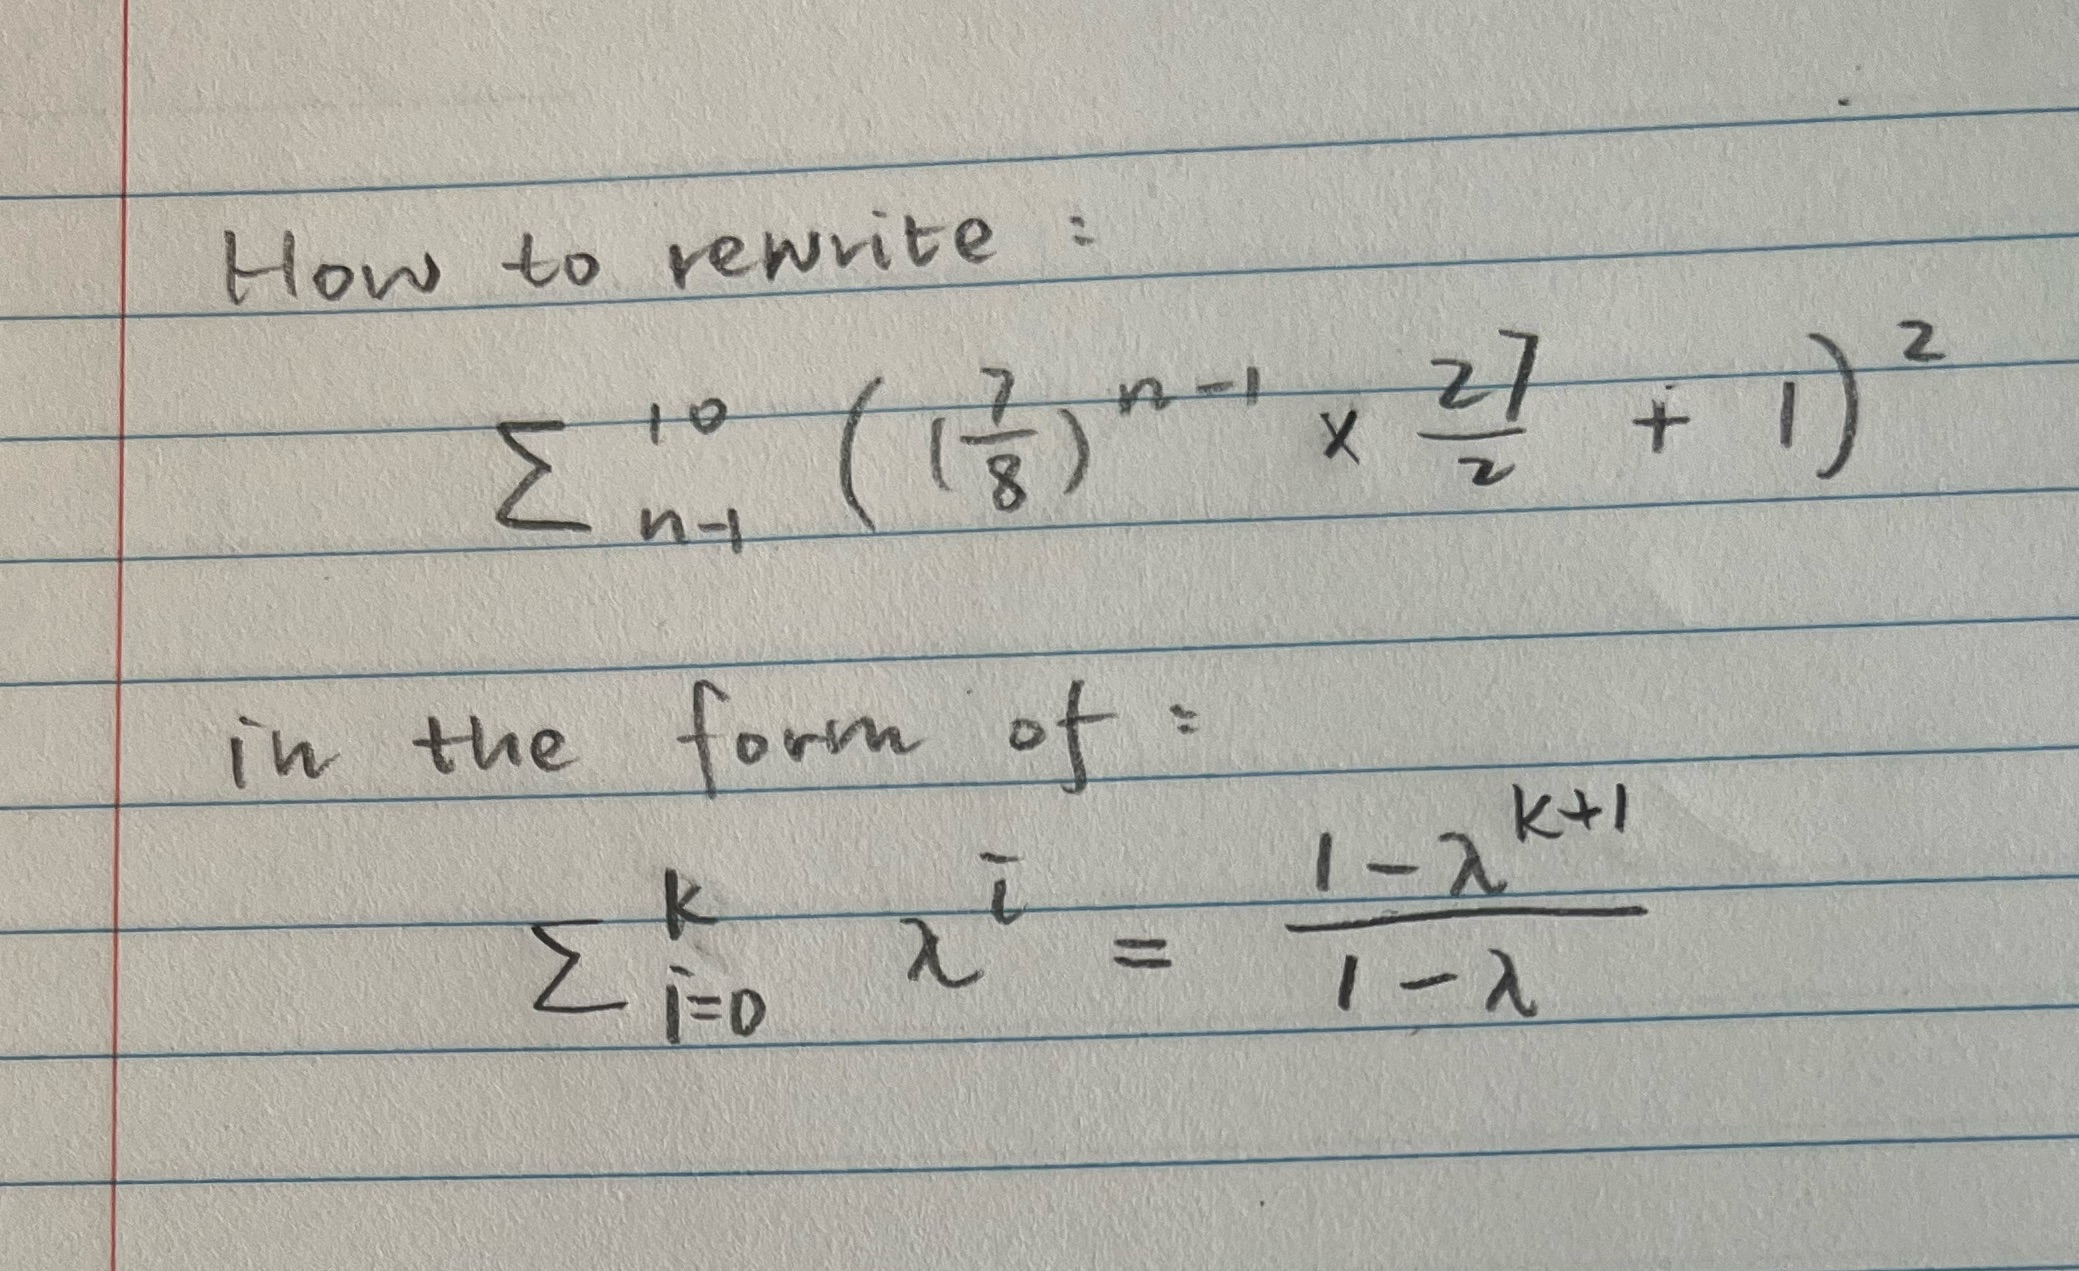 How to rewrite :
∑ ¹⁰ₙ₋₁ ( (7/8)ⁿ⁻¹ × 27/2 + 1 )²
in the form of :
∑ ᵏᵢ₌₀ λⁱ = (1 - λᵏ⁺¹)/(1 - λ)